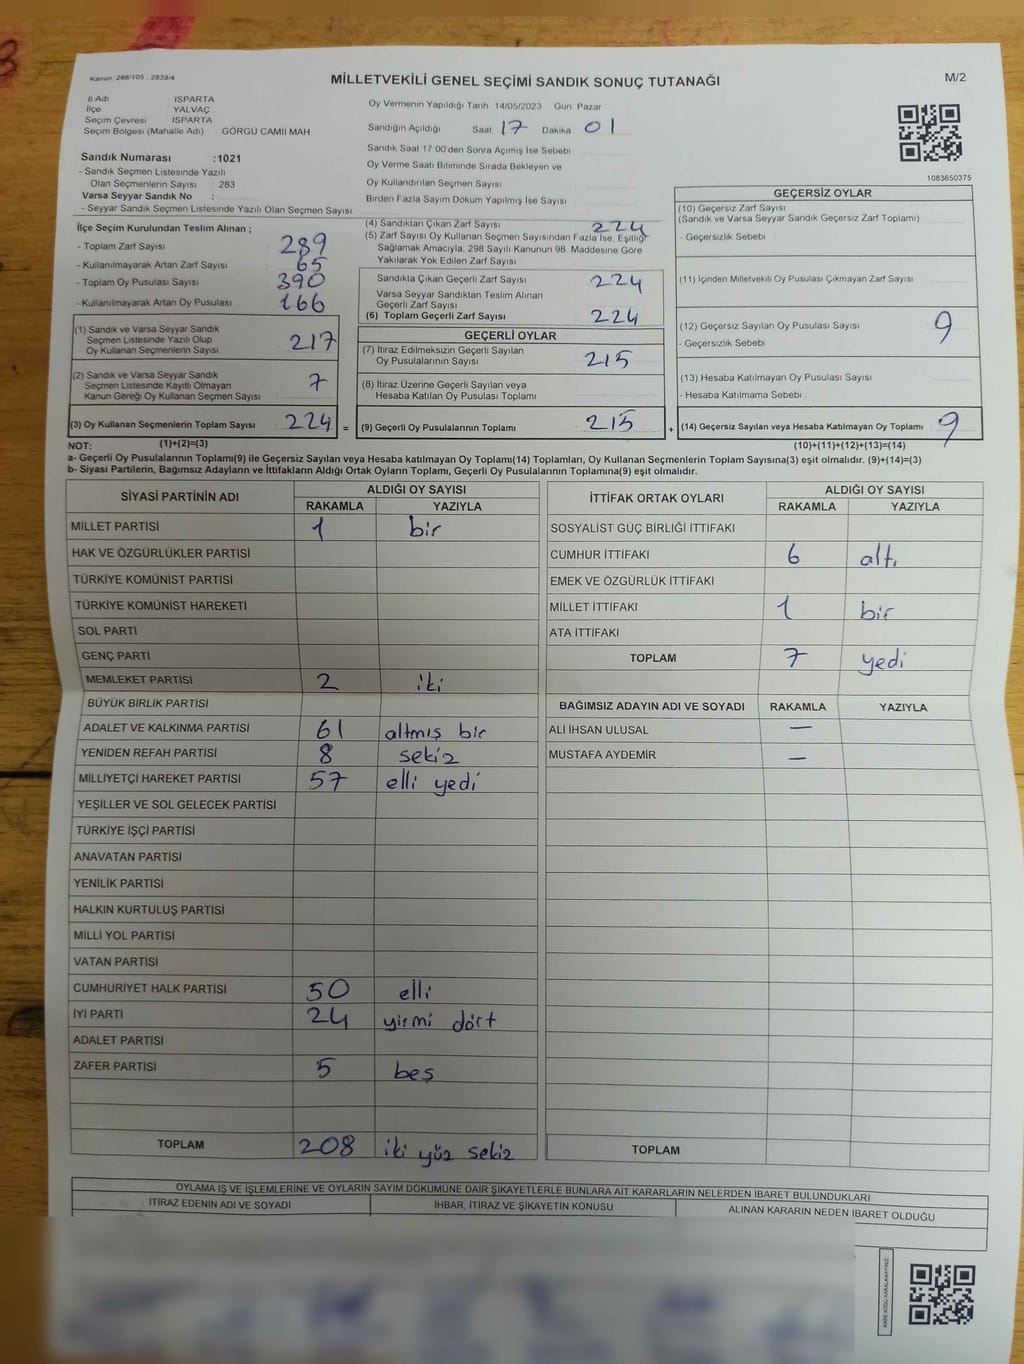 Kanun: 298/105 . 2839/4
MİLLETVEKİLİ GENEL SEÇİMİ SANDIK SONUÇ TUTANAĞI
M/2
İl Adı ISPARTA
İlçe YALVAÇ
Seçim Çevresi ISPARTA
Seçim Bölgesi (Mahalle Adı) : GÖRGÜ CAMİİ MAH
Sandık Numarası :1021
- Sandık Seçmen Listesinde Yazılı
Olan Seçmenlerin Sayısı : 283
Varsa Seyyar Sandık No :
- Seyyar Sandık Seçmen Listesinde Yazılı Olan Seçmen Sayısı
Oy Vermenin Yapıldığı Tarih 14/05/2023 Gün Pazar
Sandığın Açıldığı Saat 17 Dakika 01
Sandık Saat 17 00'den Sonra Açılmış İse Sebebi
Oy Verme Saati Bitiminde Sırada Bekleyen ve
Oy Kullandırılan Seçmen Sayısı
Birden Fazla Sayım Döküm Yapılmış İse Sayısı
1083650375
İlçe Seçim Kurulundan Teslim Alınan ;
- Toplam Zarf Sayısı 289
- Kullanılmayarak Artan Zarf Sayısı 65
- Toplam Oy Pusulası Sayısı 390
- Kullanılmayarak Artan Oy Pusulası 166
(1) Sandık ve Varsa Seyyar Sandık
Seçmen Listesinde Yazılı Olup
Oy Kullanan Seçmenlerin Sayısı 217
(2) Sandık ve Varsa Seyyar Sandık
Seçmen Listesinde Kayıtlı Olmayan
Kanun Gereği Oy Kullanan Seçmen Sayısı 7
(3) Oy Kullanan Seçmenlerin Toplam Sayısı 224 =
(4) Sandıktan Çıkan Zarf Sayısı 224
(5) Zarf Sayısı Oy Kullanan Seçmen Sayısından Fazla İse, Eşitliği
Sağlamak Amacıyla, 298 Sayılı Kanunun 98. Maddesine Göre
Yakılarak Yok Edilen Zarf Sayısı
Sandıkta Çıkan Geçerli Zarf Sayısı 224
Varsa Seyyar Sandıktan Teslim Alınan
Geçerli Zarf Sayısı
(6) Toplam Geçerli Zarf Sayısı 224
GEÇERLİ OYLAR
(7) İtiraz Edilmeksizin Geçerli Sayılan
Oy Pusulalarının Sayısı 215
(8) İtiraz Üzerine Geçerli Sayılan veya
Hesaba Katılan Oy Pusulası Toplamı
(9) Geçerli Oy Pusulalarının Toplamı 215 +
GEÇERSİZ OYLAR
(10) Geçersiz Zarf Sayısı
(Sandık ve Varsa Seyyar Sandık Geçersiz Zarf Toplamı)
- Geçersizlik Sebebi
(11) İçinden Milletvekili Oy Pusulası Çıkmayan Zarf Sayısı
(12) Geçersiz Sayılan Oy Pusulası Sayısı 9
- Geçersizlik Sebebi
(13) Hesaba Katılmayan Oy Pusulası Sayısı
- Hesaba Katılmama Sebebi
(14) Geçersiz Sayılan veya Hesaba Katılmayan Oy Toplamı 9
NOT: (1)+(2)=(3) (10)+(11)+(12)+(13)=(14)
a- Geçerli Oy Pusulalarının Toplamı(9) ile Geçersiz Sayılan veya Hesaba katılmayan Oy Toplamı(14) Toplamları, Oy Kullanan Seçmenlerin Toplam Sayısına(3) eşit olmalıdır. (9)+(14)=(3)
b- Siyasi Partilerin, Bağımsız Adayların ve İttifakların Aldığı Ortak Oyların Toplamı, Geçerli Oy Pusulalarının Toplamına(9) eşit olmalıdır.
SİYASİ PARTİNİN ADI ALDIĞI OY SAYISI
RAKAMLA YAZIYLA
MİLLET PARTİSİ 1 bir
HAK VE ÖZGÜRLÜKLER PARTİSİ
TÜRKİYE KOMÜNİST PARTİSİ
TÜRKİYE KOMÜNİST HAREKETİ
SOL PARTİ
GENÇ PARTİ
MEMLEKET PARTİSİ 2 iki
BÜYÜK BİRLİK PARTİSİ
ADALET VE KALKINMA PARTİSİ 61 altmış bir
YENİDEN REFAH PARTİSİ 8 sekiz
MİLLİYETÇİ HAREKET PARTİSİ 57 elli yedi
YEŞİLLER VE SOL GELECEK PARTİSİ
TÜRKİYE İŞÇİ PARTİSİ
ANAVATAN PARTİSİ
YENİLİK PARTİSİ
HALKIN KURTULUŞ PARTİSİ
MİLLİ YOL PARTİSİ
VATAN PARTİSİ
CUMHURİYET HALK PARTİSİ 50 elli
İYİ PARTİ 24 yirmi dört
ADALET PARTİSİ
ZAFER PARTİSİ 5 beş
TOPLAM 208 iki yüz sekiz
İTTİFAK ORTAK OYLARI ALDIĞI OY SAYISI
RAKAMLA YAZIYLA
SOSYALİST GÜÇ BİRLİĞİ İTTİFAKI
CUMHUR İTTİFAKI 6 altı
EMEK VE ÖZGÜRLÜK İTTİFAKI
MİLLET İTTİFAKI 1 bir
ATA İTTİFAKI
TOPLAM 7 yedi
BAĞIMSIZ ADAYIN ADI VE SOYADI RAKAMLA YAZIYLA
ALİ İHSAN ULUSAL —
MUSTAFA AYDEMİR —
TOPLAM
OYLAMA İŞ VE İŞLEMLERİNE VE OYLARIN SAYIM DÖKÜMÜNE DAİR ŞİKAYETLERLE BUNLARA AİT KARARLARIN NELERDEN İBARET BULUNDUKLARI
İTİRAZ EDENİN ADI VE SOYADI İHBAR, İTİRAZ VE ŞİKAYETİN KONUSU ALINAN KARARIN NEDEN İBARET OLDUĞU
KARE KODU KARALAMAYINIZ!